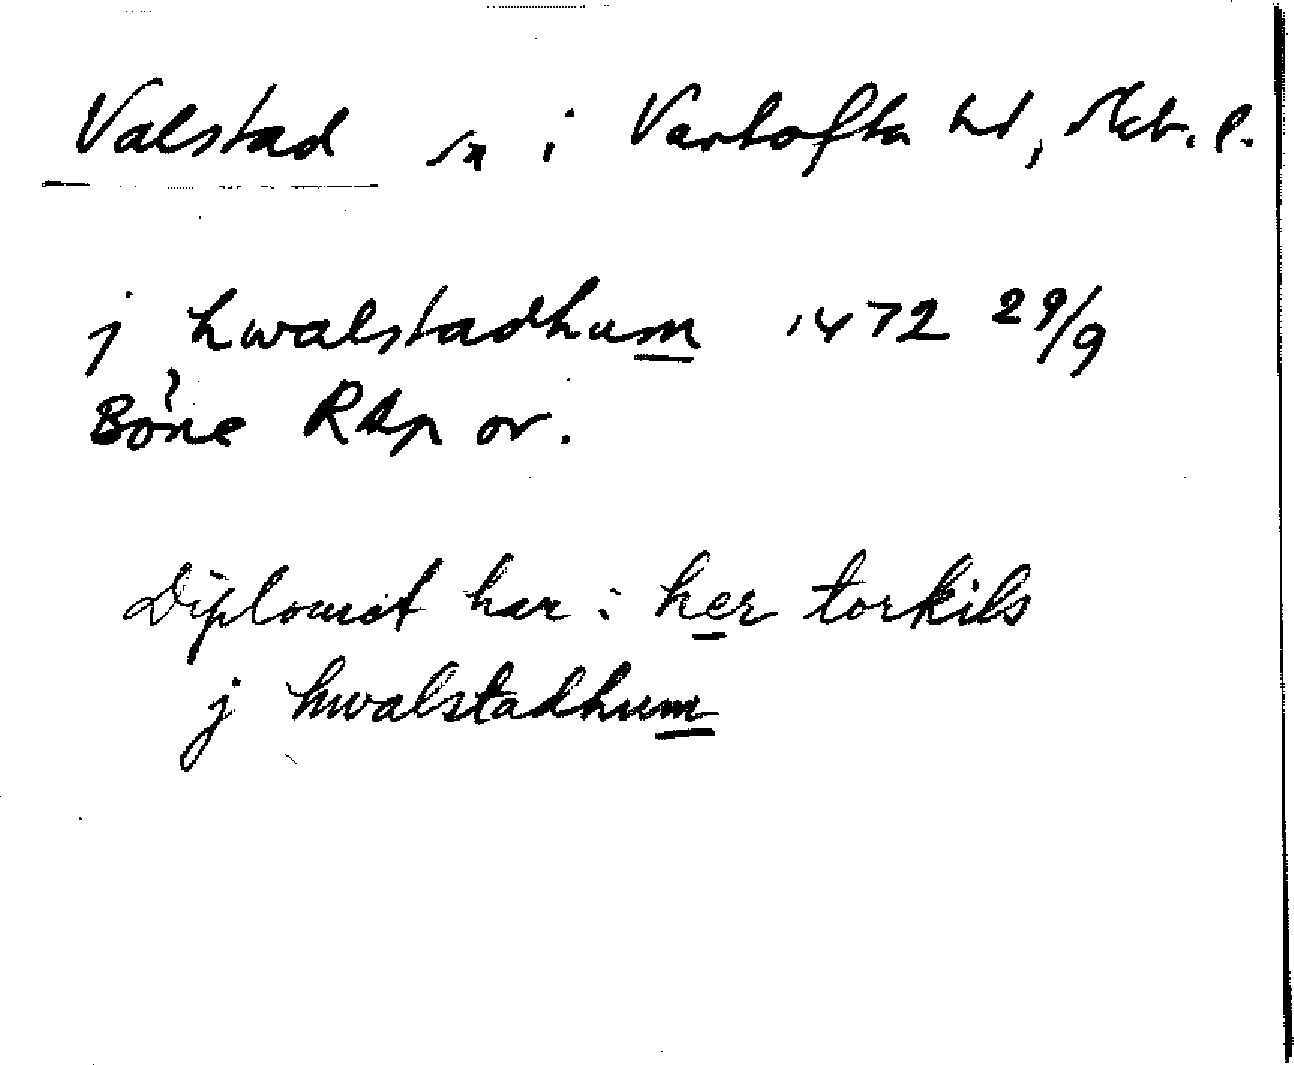 Valstad sn i Vartofta hd, Skb. l.
j hwalstadhum 1472 29/9
Böne RAp or.
Diplomet har: her torkils
j hwalstadhum